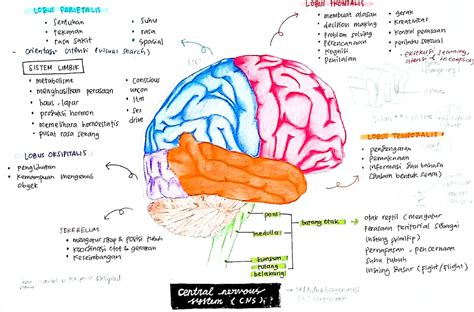 LOBUS PARIETALIS
• Sentuhan
• tekanan
• rasa sakit
• suhu
• rasa
• spasial
- orientasi atensi (visual search)
SISTEM LIMBIK
• metabolisme
• menghasilkan perasaan
• haus, lapar
• produksi hormon
• memelihara homeostatis
• pusat rasa senang
• Conscious
uncon
• ltm
• sex
drive
LOBUS OKSIPITALIS
• penglihatan
• kemampuan mengenali
objek
SEREBELLUM
• mengatur sikap & posisi tubuh
• koordinasi otot & gerakan
• keseimbangan
LOBUS FRONTALIS
• membuat alasan
• decision making
• problem solving
• perencanaan
• kognisi
• penilaian
• gerak
• kreativitas
• kontrol perasaan
• perilaku seksual
LOBUS TEMPORALIS
• pendengaran
• pemaknaan
• informasi dan bahasa
(dalam bentuk suara)
pons
medulla
batang otak
sumsum
tulang
belakang
otak reptil (mengatur
perasaan teritorial sebagai
insting primitif)
pernapasan, pencernaan
suhu tubuh
insting dasar (fight/flight)
Central nervous
system (CNS)